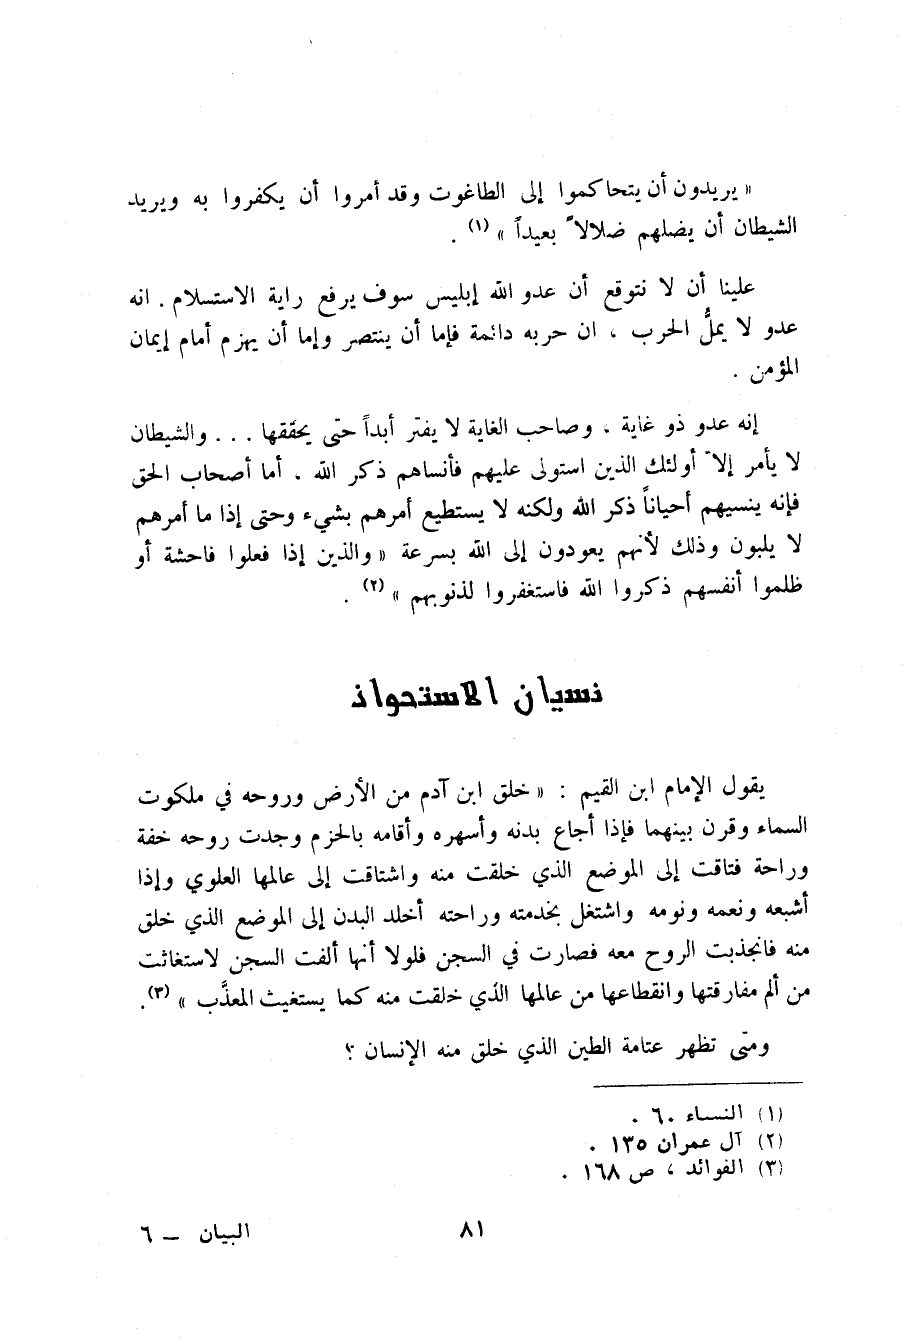 « يريدون أن يتحاكموا إلى الطاغوت وقد أمروا أن يكفروا به ويريد
الشيطان أن يضلهم ضلالاً بعيداً » (١) .
علينا أن لا نتوقع أن عدو الله إبليس سوف يرفع راية الاستسلام . انه
عدو لا يملُّ الحرب ، ان حربه دائمة فإما أن ينتصر وإما أن يهزم أمام إيمان
المؤمن .
إنه عدو ذو غاية ، وصاحب الغاية لا يفتر أبداً حتى يحققها . . . والشيطان
لا يأمر إلاّ أولئك الذين استولى عليهم فأنساهم ذكر الله . أما أصحاب الحق
فإنه ينسيهم أحياناً ذكر الله ولكنه لا يستطيع أمرهم بشيء وحتى إذا ما أمرهم
لا يلبون وذلك لأنهم يعودون إلى الله بسرعة « والذين إذا فعلوا فاحشة أو
ظلموا أنفسهم ذكروا الله فاستغفروا لذنوبهم » (٢) .
نسيان الاستحواذ
يقول الإمام ابن القيم : « خلق ابن آدم من الأرض وروحه في ملكوت
السماء وقرن بينهما فإذا أجاع بدنه وأسهره وأقامه بالحزم وجدت روحه خفة
وراحة فتاقت إلى الموضع الذي خلقت منه واشتاقت إلى عالمها العلوي وإذا
أشبعه ونعمه ونومه واشتغل بخدمته وراحته أخلد البدن إلى الموضع الذي خلق
منه فانجذبت الروح معه فصارت في السجن فلولا أنها ألفت السجن لاستغاثت
من ألم مفارقتها وانقطاعها من عالمها الذي خلقت منه كما يستغيث المعذَّب » (٣).
ومتى تظهر عتامة الطين الذي خلق منه الإنسان ؟
(١) النساء ٦٠ .
(٢) آل عمران ١٣٥ .
(٣) الفوائد ، ص ١٦٨ .
٨١
البيان – ٦